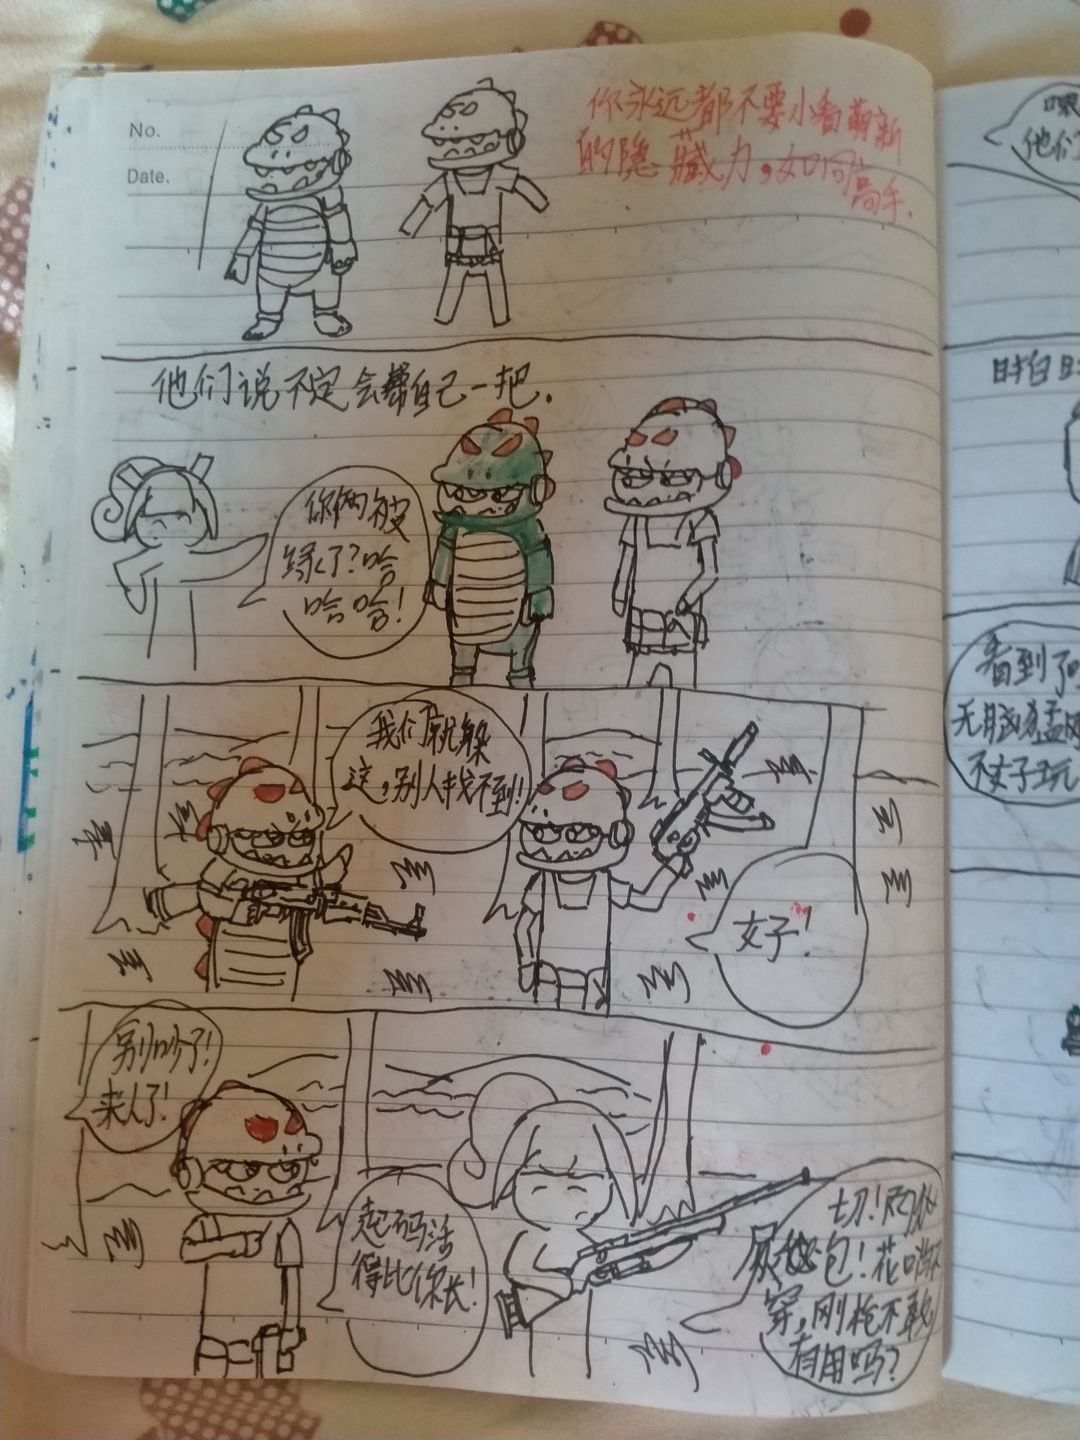 No.
Date.
你永远都不要小看萌新
的隐藏力,如同高手.
他们说不定会帮自己一把.
你俩被
绿了?哈
哈哈!
我们就躲
这,别人找不到!
好!
别吵了!
来人了!
起码活
得比你长!
切!
包!花
穿,刚枪不敢
有用吗?
他们
看到了
无脑猛